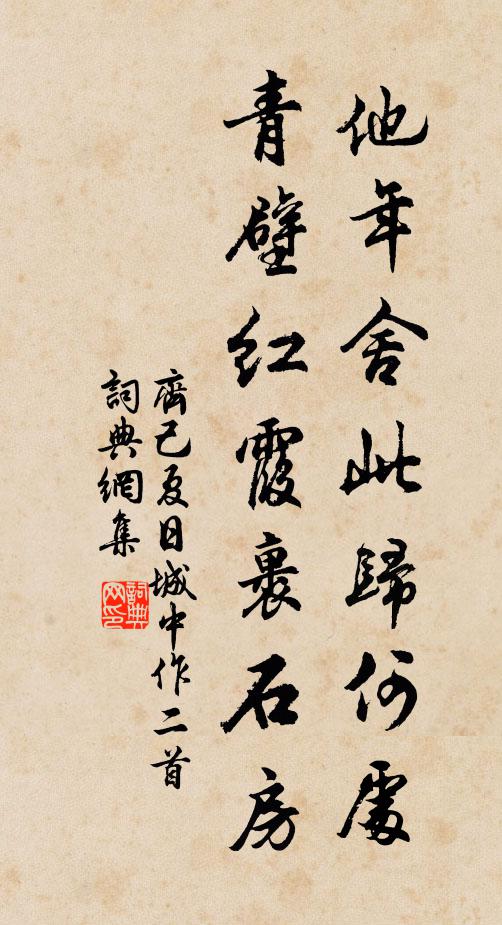 他年舍此歸何處
青壁紅霞裹石房
齊己夏日城中作二首
詞典網集
詞典網印